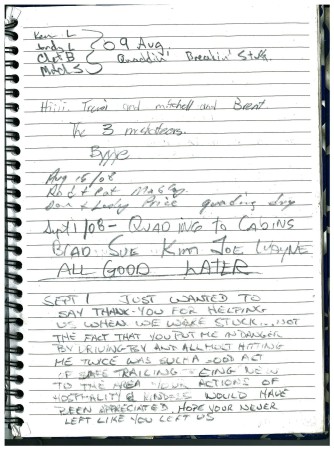 Ken L
Andy L
Chet B
Mitch S
09 Aug.
Quaddin' Breakin' Stuff.
Hiii. Travis and mitchell and Brent
The 3 musketeers.
Byyye
Aug 16/08
Rod & Pat
Don & Lady Price quading
Sept 1/08 - QUADING TO CABINS
BRAD SUE KIM JOE WAYNE
ALL GOOD LATER
SEPT 1 JUST WANTED TO
SAY THANK-YOU FOR HELPING
US WHEN WE WERE STUCK... NOT
THE FACT THAT YOU PUT ME IN DANGER
BY DRIVING BY AND ALLMOST HITTING
ME TWICE WAS SUCH A GOOD ACT
OF SAFE TRAILING. BEING NEW
TO THE AREA YOUR ACTIONS OF
HOSPITALITY & KINDESS WOULD HAVE
BEEN APPRECIATED. HOPE YOUR NEVER
LEFT LIKE YOU LEFT US